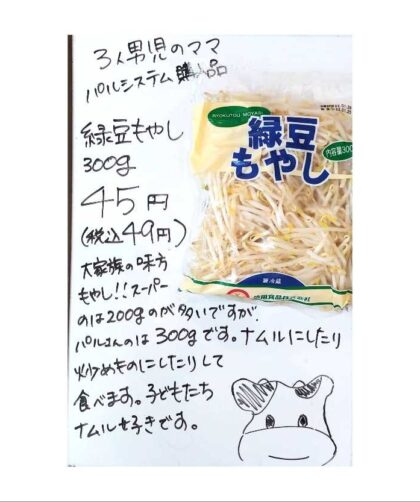 3人男児のママ
パルシステム購入品
緑豆もやし
300g
45円
(税込49円)
大家族の味方
もやし!!スーパー
のは200gのが多いですが、
パルさんのは300gです。ナムルにしたり
炒めものにしたりして
食べます。子どもたち
ナムル好きです。
RYOKUTOU MOYASHI
緑豆
もやし
内容量300
要冷蔵